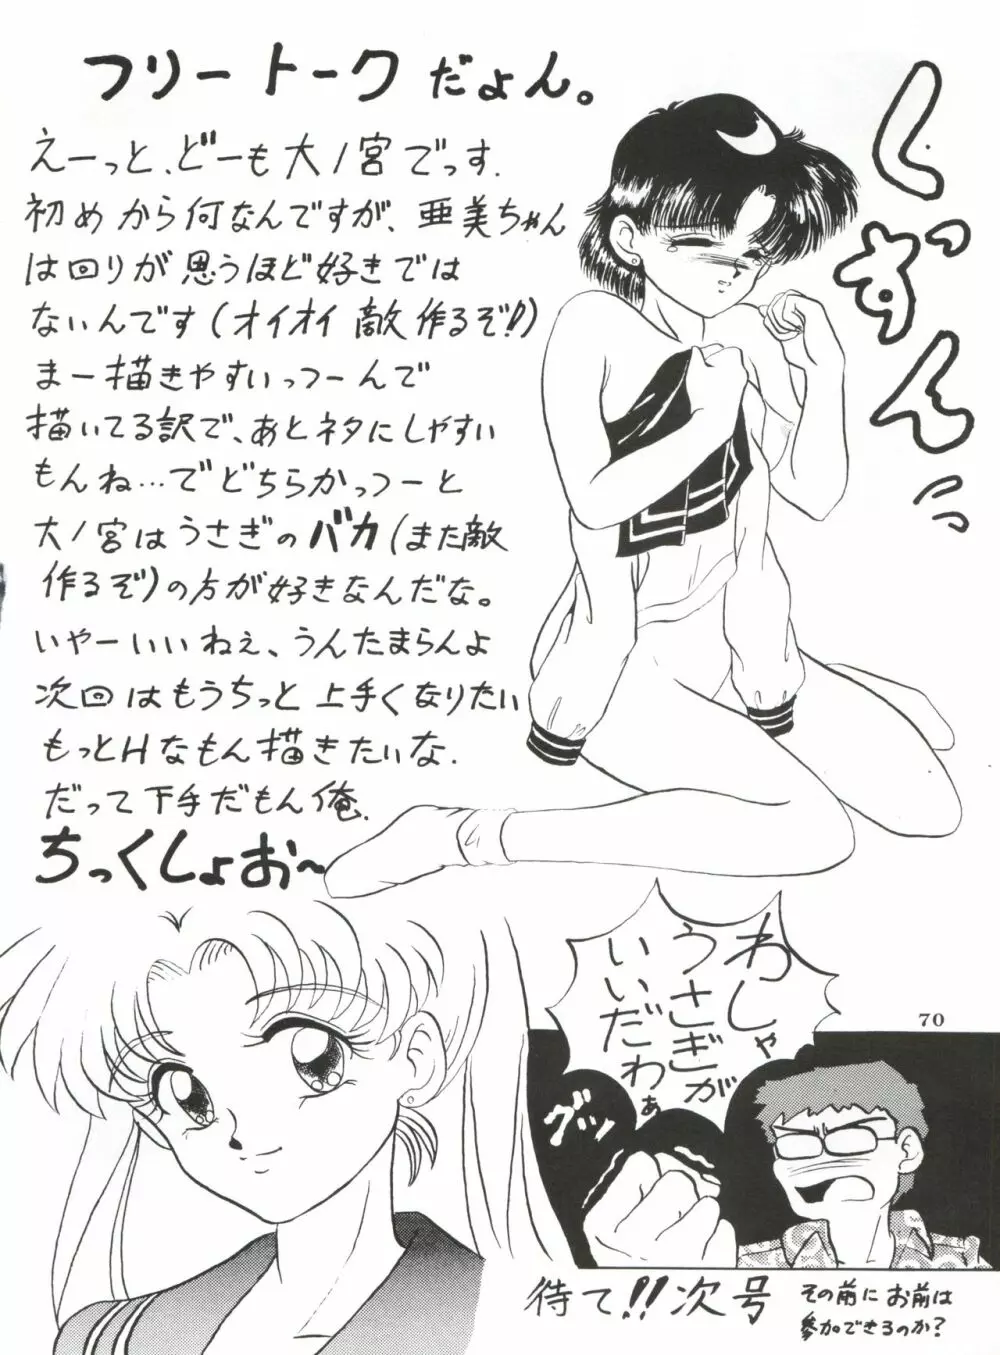 フリートークだよん。
えーっと、どーも大ノ宮でっす.
初めから何なんですが、亜美ちゃん
は回りが思うほど好きでは
ないんです(オイオイ敵作るぞ!!)
まー描きやすいっつーんで
描いてる訳で、あとネタにしやすい
もんね…でどちらかっつーと
大ノ宮はうさぎのバカ(また敵
作るぞ)の方が好きなんだな。
いやーいいねぇ、うんたまらんよ
次回はもうちっと上手くなりたい
もっとHなもん描きたいな.
だって下手だもん俺.
ちっくしょお〜
くすん
わしゃ
うさぎが
いいだわぁ
グッ
70
待て!!次号
その前にお前は
参加できるのか?